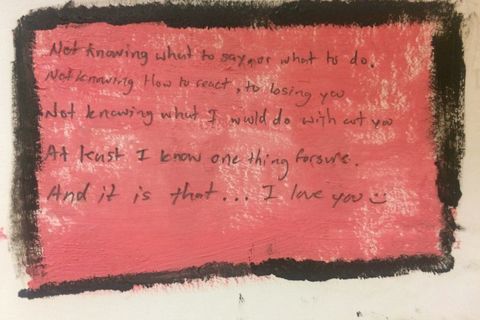 Not knowing what to say, nor what to do.
Not knowing How to react, to losing you
Not knowing what I would do with out you
At least I know one thing forsure.
And it is that... I love you :)